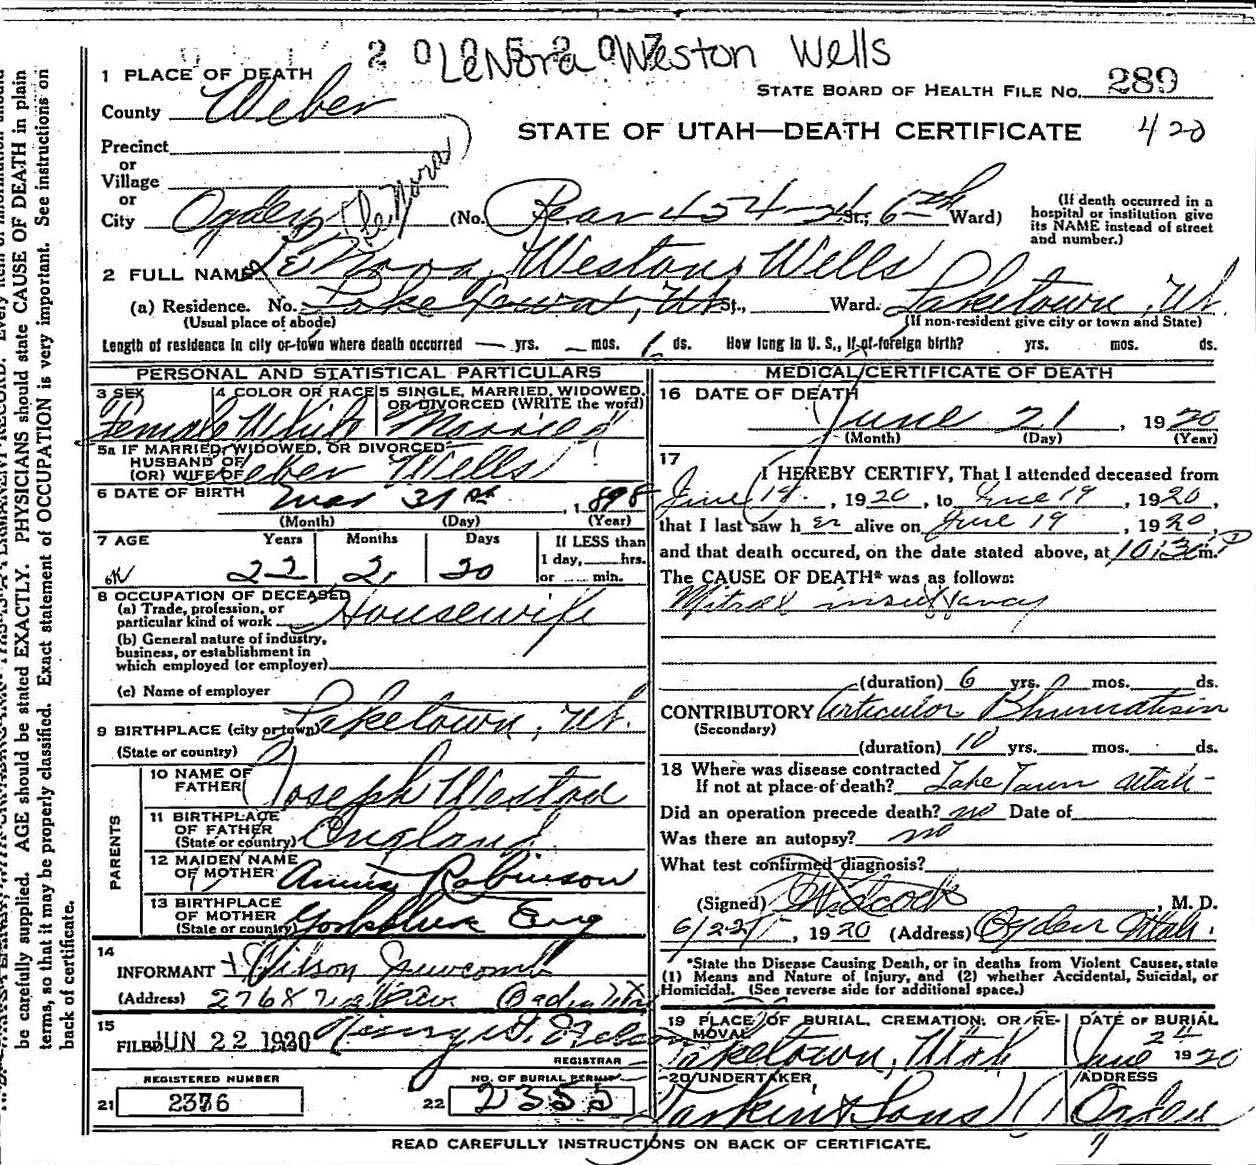 2 0 0 5 2 0 7
LeNora Weston Wells
STATE BOARD OF HEALTH FILE NO. 289
STATE OF UTAH—DEATH CERTIFICATE 420
1 PLACE OF DEATH
County Weber
Precinct
or
Village
or
City Ogden (No. Rear 454-24 St; 6th Ward)
(LeNora)
(If death occurred in a
hospital or institution give
its NAME instead of street
and number.)
2 FULL NAME LeNora Weston Wells
(a) Residence. No. Lake Town, Ut St., Ward. Laketown, Ut.
(Usual place of abode) (If non-resident give city or town and State)
Length of residence in city or town where death occurred — yrs. — mos. ds. How long in U. S., if of foreign birth? yrs. mos. ds.
PERSONAL AND STATISTICAL PARTICULARS
3 SEX Female
4 COLOR OR RACE White
5 SINGLE, MARRIED, WIDOWED,
OR DIVORCED (WRITE the word)
Married
5a IF MARRIED, WIDOWED, OR DIVORCED
HUSBAND OF
(OR) WIFE OF Heber Wells
6 DATE OF BIRTH Mar 31st, 1898
(Month) (Day) (Year)
7 AGE Years Months Days If LESS than
1 day, hrs.
or min.
22 2 20
8 OCCUPATION OF DECEASED
(a) Trade, profession, or
particular kind of work Housewife
(b) General nature of industry,
business, or establishment in
which employed (or employer)
(c) Name of employer
9 BIRTHPLACE (city or town) Laketown, Ut.
(State or country)
PARENTS
10 NAME OF
FATHER Joseph Weston
11 BIRTHPLACE
OF FATHER
(State or country) England
12 MAIDEN NAME
OF MOTHER Annie Robinson
13 BIRTHPLACE
OF MOTHER
(State or country) Yorkshire Eng
14
INFORMANT Wilson Newcomb
(Address) 2768 Ogden Utah
15
FILED JUN 22 1920 Henry
REGISTRAR
REGISTERED NUMBER
21 2376
NO. OF BURIAL PERMIT
22 2355
MEDICAL CERTIFICATE OF DEATH
16 DATE OF DEATH
June 21, 1920
(Month) (Day) (Year)
17
I HEREBY CERTIFY, That I attended deceased from
June 19, 1920, to June 19, 1920,
that I last saw h er alive on June 19, 1920,
and that death occured, on the date stated above, at 10:30 P m.
The CAUSE OF DEATH* was as follows:
Mitral insuffancy
(duration) 6 yrs. 0 mos. ds.
CONTRIBUTORY Articulor Rhumatisin
(Secondary)
(duration) 10 yrs. mos. ds.
18 Where was disease contracted
If not at place of death? Lake Town Utah
Did an operation precede death? no Date of
Was there an autopsy? no
What test confirmed diagnosis?
(Signed) , M. D.
6/22, 1920 (Address) Ogden Utah.
*State the Disease Causing Death, or in deaths from Violent Causes, state
(1) Means and Nature of Injury, and (2) whether Accidental, Suicidal, or
Homicidal. (See reverse side for additional space.)
19 PLACE OF BURIAL, CREMATION, OR RE-
MOVAL
Laketown, Utah
DATE OF BURIAL
June 24 1920
20 UNDERTAKER
Larkin & Sons
ADDRESS
Ogden
READ CAREFULLY INSTRUCTIONS ON BACK OF CERTIFICATE.
be carefully supplied. AGE should be stated EXACTLY. PHYSICIANS should state CAUSE OF DEATH in plain
terms, so that it may be properly classified. Exact statement of OCCUPATION is very important. See instructions on
back of certificate.